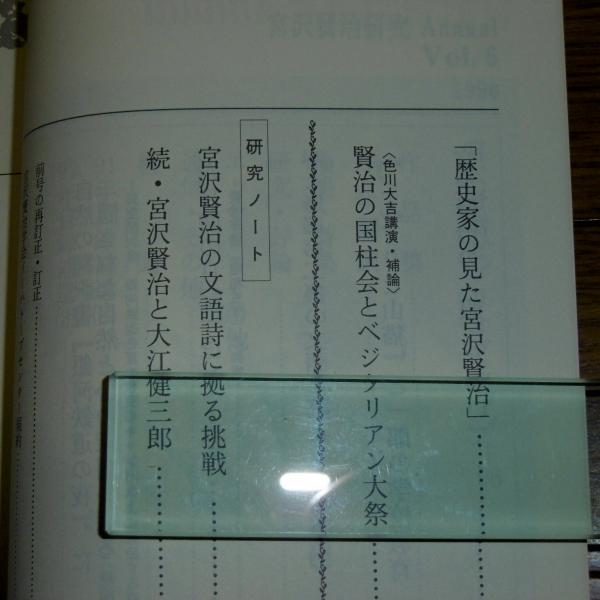 「歴史家の見た宮沢賢治」
〈色川大吉講演・補論〉
賢治の国柱会とベジタリアン大祭
研究ノート
宮沢賢治の文語詩に拠る挑戦
続・宮沢賢治と大江健三郎
前号の再訂正・訂正